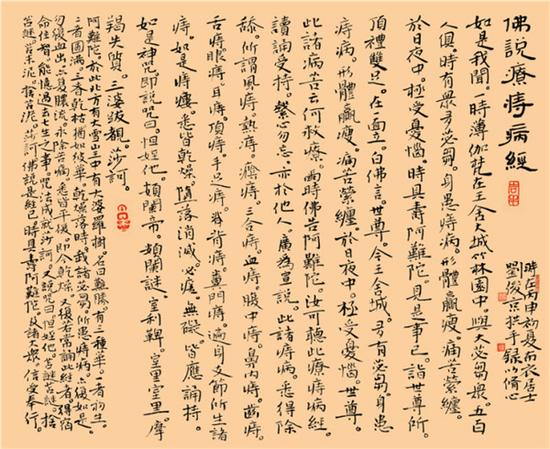 佛說療痔病經
如是我聞。一時薄伽梵在王舍大城竹林園中。與大苾芻眾。五百
人俱。時有眾多苾芻。身患痔病。形體羸瘦。痛苦縈纏。
於日夜中。極受憂惱。時具壽阿難陀。見是事已。詣世尊所
頂禮雙足。在一面立。白佛言。世尊。今王舍城。多有苾芻身患
痔病。形體羸瘦。痛苦縈纏。於日夜中。極受憂惱。世尊。
此諸病苦云何救療。爾時佛告阿難陀。汝可聽此療痔病經
讀誦受持。繫心勿忘。亦於他人。廣為宣說。此諸痔病。悉得除
殄。所謂風痔。熱痔。癊痔。三合痔。血痔。腹中痔。鼻內痔。齒痔。
舌痔。眼痔。耳痔。頂痔。手足痔。脊背痔。糞門痔。遍身支節所生諸
痔。如是痔瘻。悉皆乾燥。墮落消滅。必瘥。無疑皆應誦持。
如是神咒即說咒曰。怛姪他。頞闌帝。頞闌謎。室利鞞 室里室里。摩
羯失質。三婆跋覩。莎訶。
阿難陀。於此北方有大雪山王。中有大莎羅樹。名曰難勝。有三種華。一者初生。
二者圓滿。三者乾枯。猶如彼華。乾燥落時。我諸苾芻所患痔病。亦復如是。
勿復血出。亦勿膿流。永除苦痛。悉皆平復。即令乾燥。又復若常誦此經者。得宿
命住智。能憶過去七生之事。咒法成就莎訶。又說咒曰。怛姪他。苫謎苫謎。捨
苫謎。苫末泥。捨苫泥。莎訶。佛說是經已。時具壽阿難陀。及諸大眾。信受奉行。
時在丙申初夏布衣居士
劉俊京拱手錄以脩心